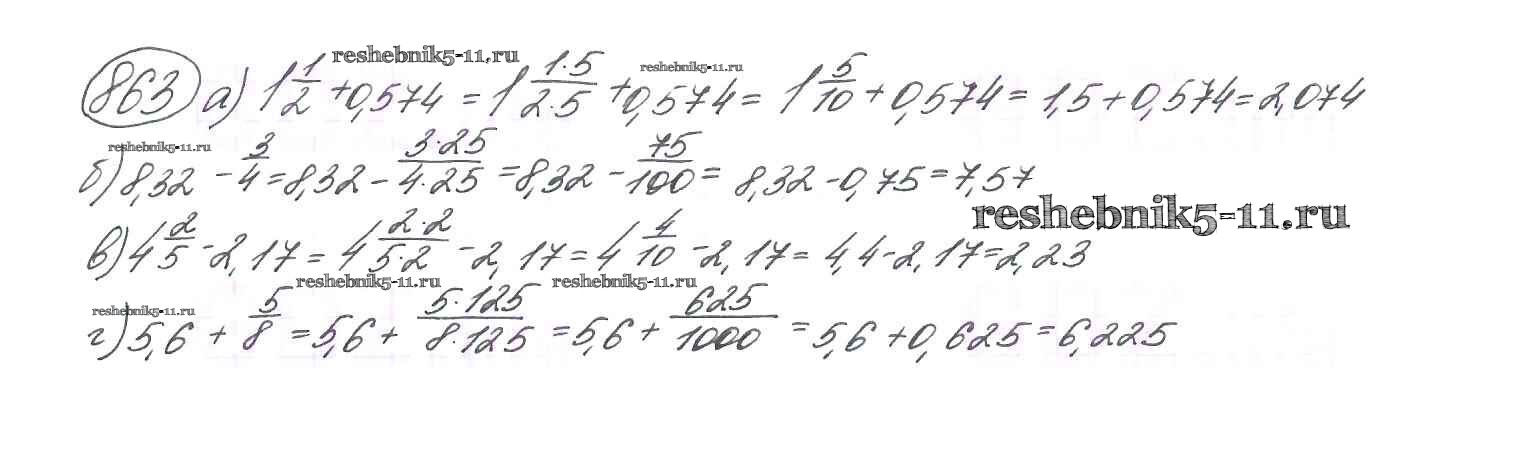 reshebnik5-11.ru
reshebnik5-11.ru
863 а) 1 1/2 + 0,574 = 1 1·5/2·5 + 0,574 = 1 5/10 + 0,574 = 1,5 + 0,574 = 2,074
reshebnik5-11.ru
б) 8,32 - 3/4 = 8,32 - 3·25/4·25 = 8,32 - 75/100 = 8,32 - 0,75 = 7,57
reshebnik5-11.ru
в) 4 2/5 - 2,17 = 4 2·2/5·2 - 2,17 = 4 4/10 - 2,17 = 4,4 - 2,17 = 2,23
reshebnik5-11.ru reshebnik5-11.ru
reshebnik5-11.ru
г) 5,6 + 5/8 = 5,6 + 5·125/8·125 = 5,6 + 625/1000 = 5,6 + 0,625 = 6,225